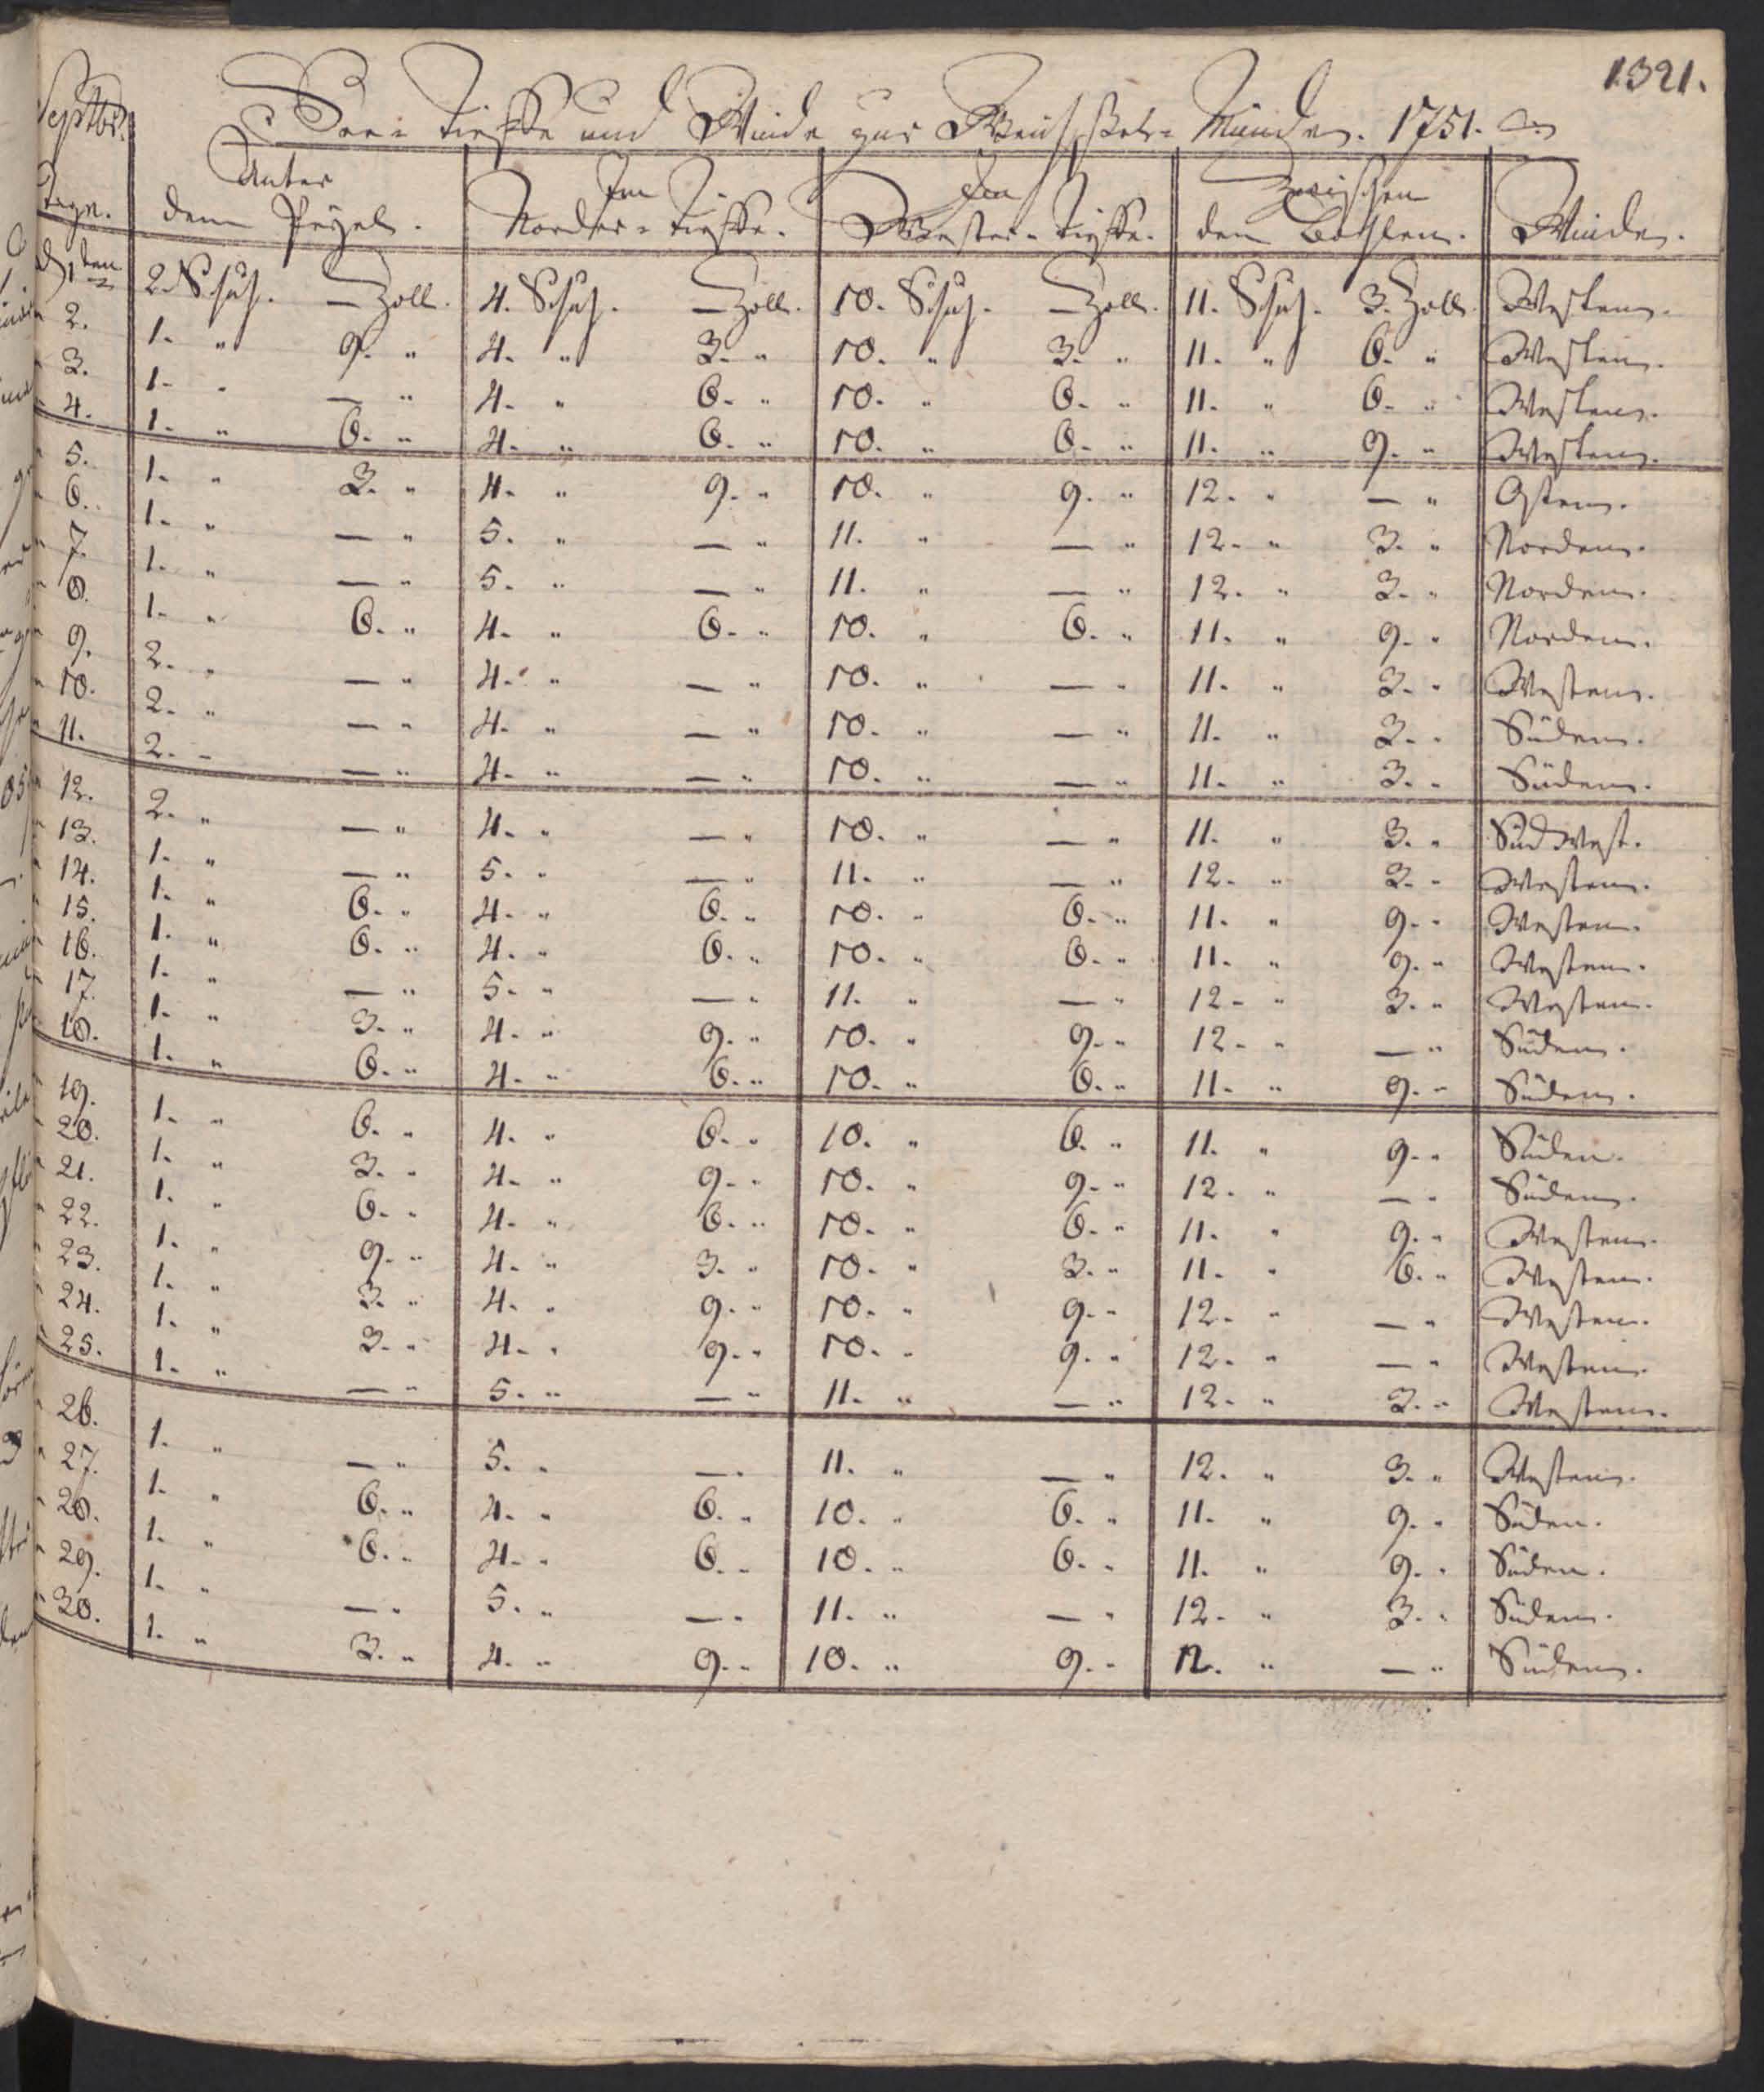 1321.
Septbr. See-Tieffe und Winde zur Weichsel-Münde. 1751.
Tage. Unter dem Pegel. Im Norder-Tieffe. Im Wester-Tieffe. Zwischen den Winde.
d 1ten 2. Schuh. — Zoll. 4. Schuh. — Zoll. 10. Schuh. — Zoll. 11. Schuh. 3. Zoll. Westen.
" 2. 1. " 9. " 4. " 3. " 10. " 3. " 11. " 6. " Westen.
" 3. 1. " — " 4. " 6. " 10. " 6. " 11. " 6. " Westen.
" 4. 1. " 6. " 4. " 6. " 10. " 6. " 11. " 9. " Westen.
" 5. 1. " 3. " 4. " 9. " 10. " 9. " 12. " — " Osten.
" 6. 1. " — " 5. " — " 11. " — " 12. " 3. " Norden.
" 7. 1. " — " 5. " — " 11. " — " 12. " 3. " Norden.
" 8. 1. " 6. " 4. " 6. " 10. " 6. " 11. " 9. " Norden.
" 9. 2. " — " 4. " — " 10. " — " 11. " 3. " Westen.
" 10. 2. " — " 4. " — " 10. " — " 11. " 3. " Süden.
" 11. 2. " — " 4. " — " 10. " — " 11. " 3. " Süden.
" 12. 2. " — " 4. " — " 10. " — " 11. " 3. " Süd West.
" 13. 1. " — " 5. " — " 11. " — " 12. " 3. " Westen.
" 14. 1. " 6. " 4. " 6. " 10. " 6. " 11. " 9. " Westen.
" 15. 1. " 6. " 4. " 6. " 10. " 6. " 11. " 9. " Westen.
" 16. 1. " — " 5. " — " 11. " — " 12. " 3. " Westen.
" 17. 1. " 3. " 4. " 9. " 10. " 9. " 12. " — " Süden.
" 18. 1. " 6. " 4. " 6. " 10. " 6. " 11. " 9. " Süden.
" 19. 1. " 6. " 4. " 6. " 10. " 6. " 11. " 9. " Süden.
" 20. 1. " 3. " 4. " 9. " 10. " 9. " 12. " — " Süden.
" 21. 1. " 6. " 4. " 6. " 10. " 6. " 11. " 9. " Westen.
" 22. 1. " 9. " 4. " 3. " 10. " 3. " 11. " 6. " Westen.
" 23. 1. " 3. " 4. " 9. " 10. " 9. " 12. " — " Westen.
" 24. 1. " 3. " 4. " 9. " 10. " 9. " 12. " — " Westen.
" 25. 1. " — " 5. " — " 11. " — " 12. " 3. " Westen.
" 26. 1. " — " 5. " — " 11. " — " 12. " 3. " Westen.
" 27. 1. " 6. " 4. " 6. " 10. " 6. " 11. " 9. " Süden.
" 28. 1. " 6. " 4. " 6. " 10. " 6. " 11. " 9. " Süden.
" 29. 1. " — " 5. " — " 11. " — " 12. " 3. " Süden.
" 30. 1. " 3. " 4. " 9. " 10. " 9. " 12. " — " Süden.